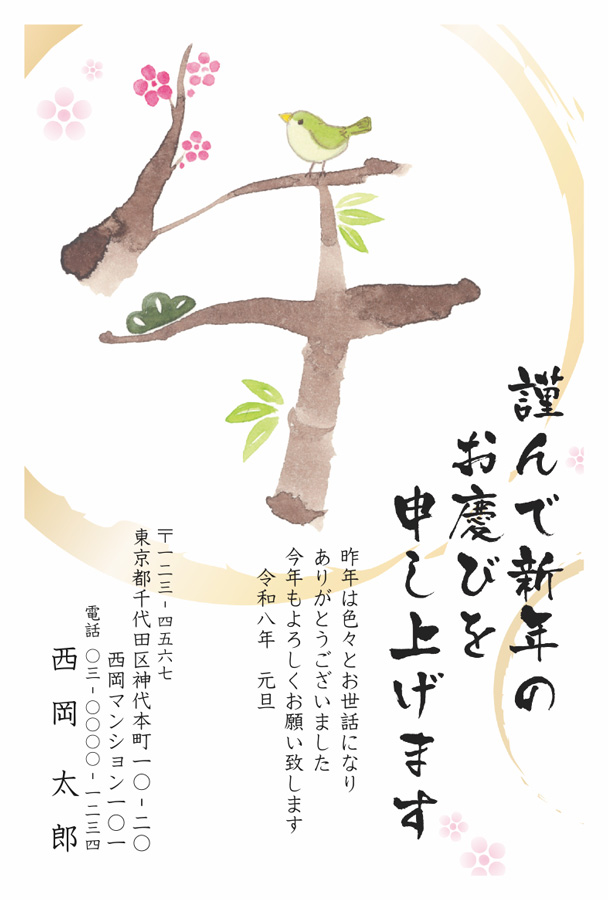 午
謹んで新年の
お慶びを
申し上げます
昨年は色々とお世話になり
ありがとうございました
今年もよろしくお願い致します
令和八年 元旦
〒一二三-四五六七
東京都千代田区神代本町一〇-二〇
西岡マンション一〇一
電話 〇三-〇〇〇〇-一二三四
西岡 太郎